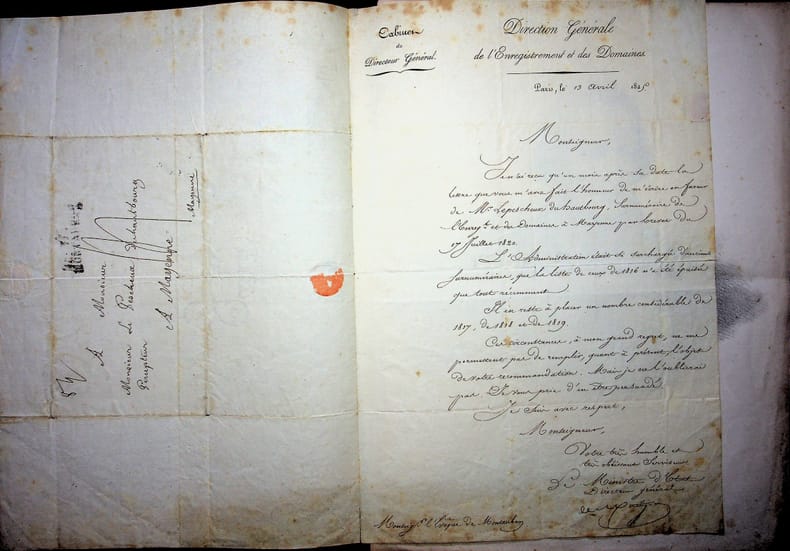 A Monsieur
Monsieur Le Pescheux Duhautbourg
Percepteur
A Mayenne
Mayenne
Cabinet
du
Directeur Général.
Direction Générale
de l'Enregistrement et des Domaines.
Paris, le 13 avril 1825
Monseigneur,
Je n'ai reçu qu'un mois après sa date la
lettre que vous m'avez fait l'honneur de m'écrire en faveur
de Mr. Lepescheux duhautbourg, Surnuméraire de
l'Enregt. et des Domaines à Mayenne par brevet du
17 Juillet 1820.
L'Administration était si surchargée d'anciens
surnuméraires, que la liste de ceux de 1816 n'a été épuisée
que tout récemment.
Il en reste à placer un nombre considérable de
1817, de 1818 et de 1819.
Ces circonstances, à mon grand regret, ne me
permettent pas de remplir, quant à présent, l'objet
de votre recommandation. Mais je ne l'oublierai
pas. Je vous prie d'en être persuadé.
Je suis avec respect,
Monseigneur,
Votre très humble et
très obéissant Serviteur
Le Ministre d'Etat
Directeur général
Monseigr. l'Evêque de Montauban